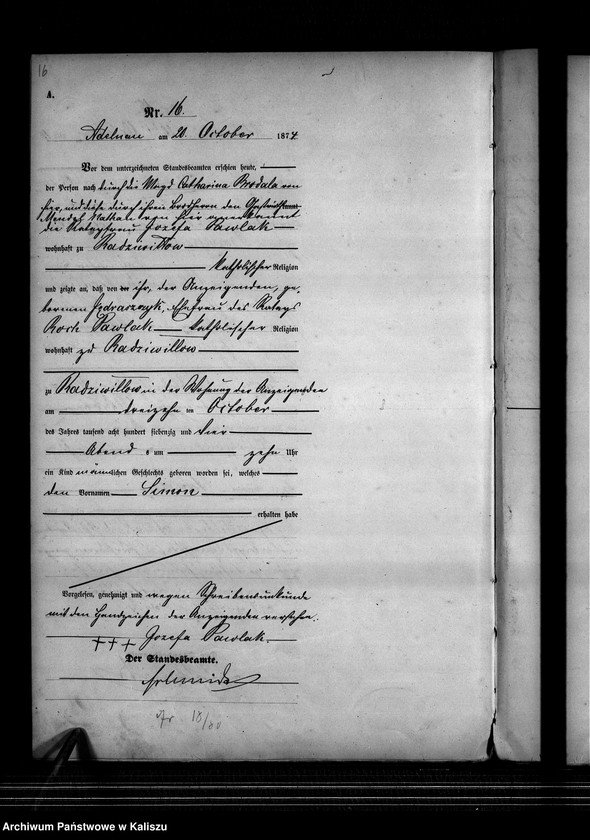 16
A.
Nr. 16.
Adelnau am 20. October 1874
Vor dem unterzeichneten Standesbeamten erschien heute,
der Person nach durch die Magd Catharina Brodala von
hier, und diese durch ihren Brodherrn den
Mendel Nathan von hier anerkannt
die Josefa Pawlak
wohnhaft zu Radziwillow
katholischer Religion
und zeigte an, daß von ihr, der Anzeigenden, ge-
bornen Jedraszczyk, Ehefrau des
Roch Pawlak katholischer Religion
wohnhaft zu Radziwillow
zu Radziwillow in der Wohnung der Anzeigenden
am dreizehn ten October
des Jahrs tausend acht hundert siebenzig und vier
Abend s um zehn Uhr
ein Kind männlichen Geschlechts geboren worden sei, welches
den Vornamen Simon
erhalten habe
Vorgelesen, genehmigt und wegen Schreibensunkunde
mit den Handzeichen der Anzeigenden versehen.
+++ Josefa Pawlak
Der Standesbeamte.
18/00
Archiwum Państwowe w Kaliszu